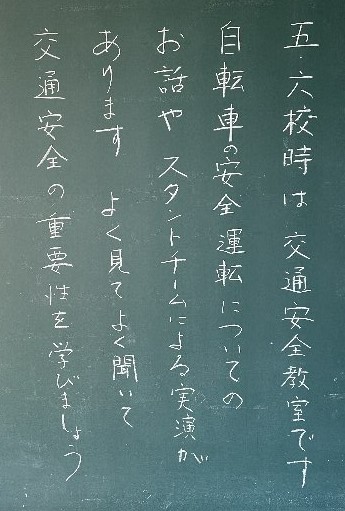 五・六校時は 交通安全教室です
自転車の安全運転についての
お話や スタントチームによる実演が
あります よく見てよく聞いて
交通安全の重要性を学びましょう